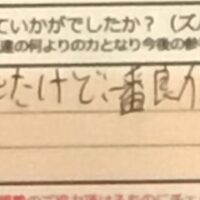 ていかがでしたか？（ズ
達の何よりの力となり今後の参
たけど、一番良か